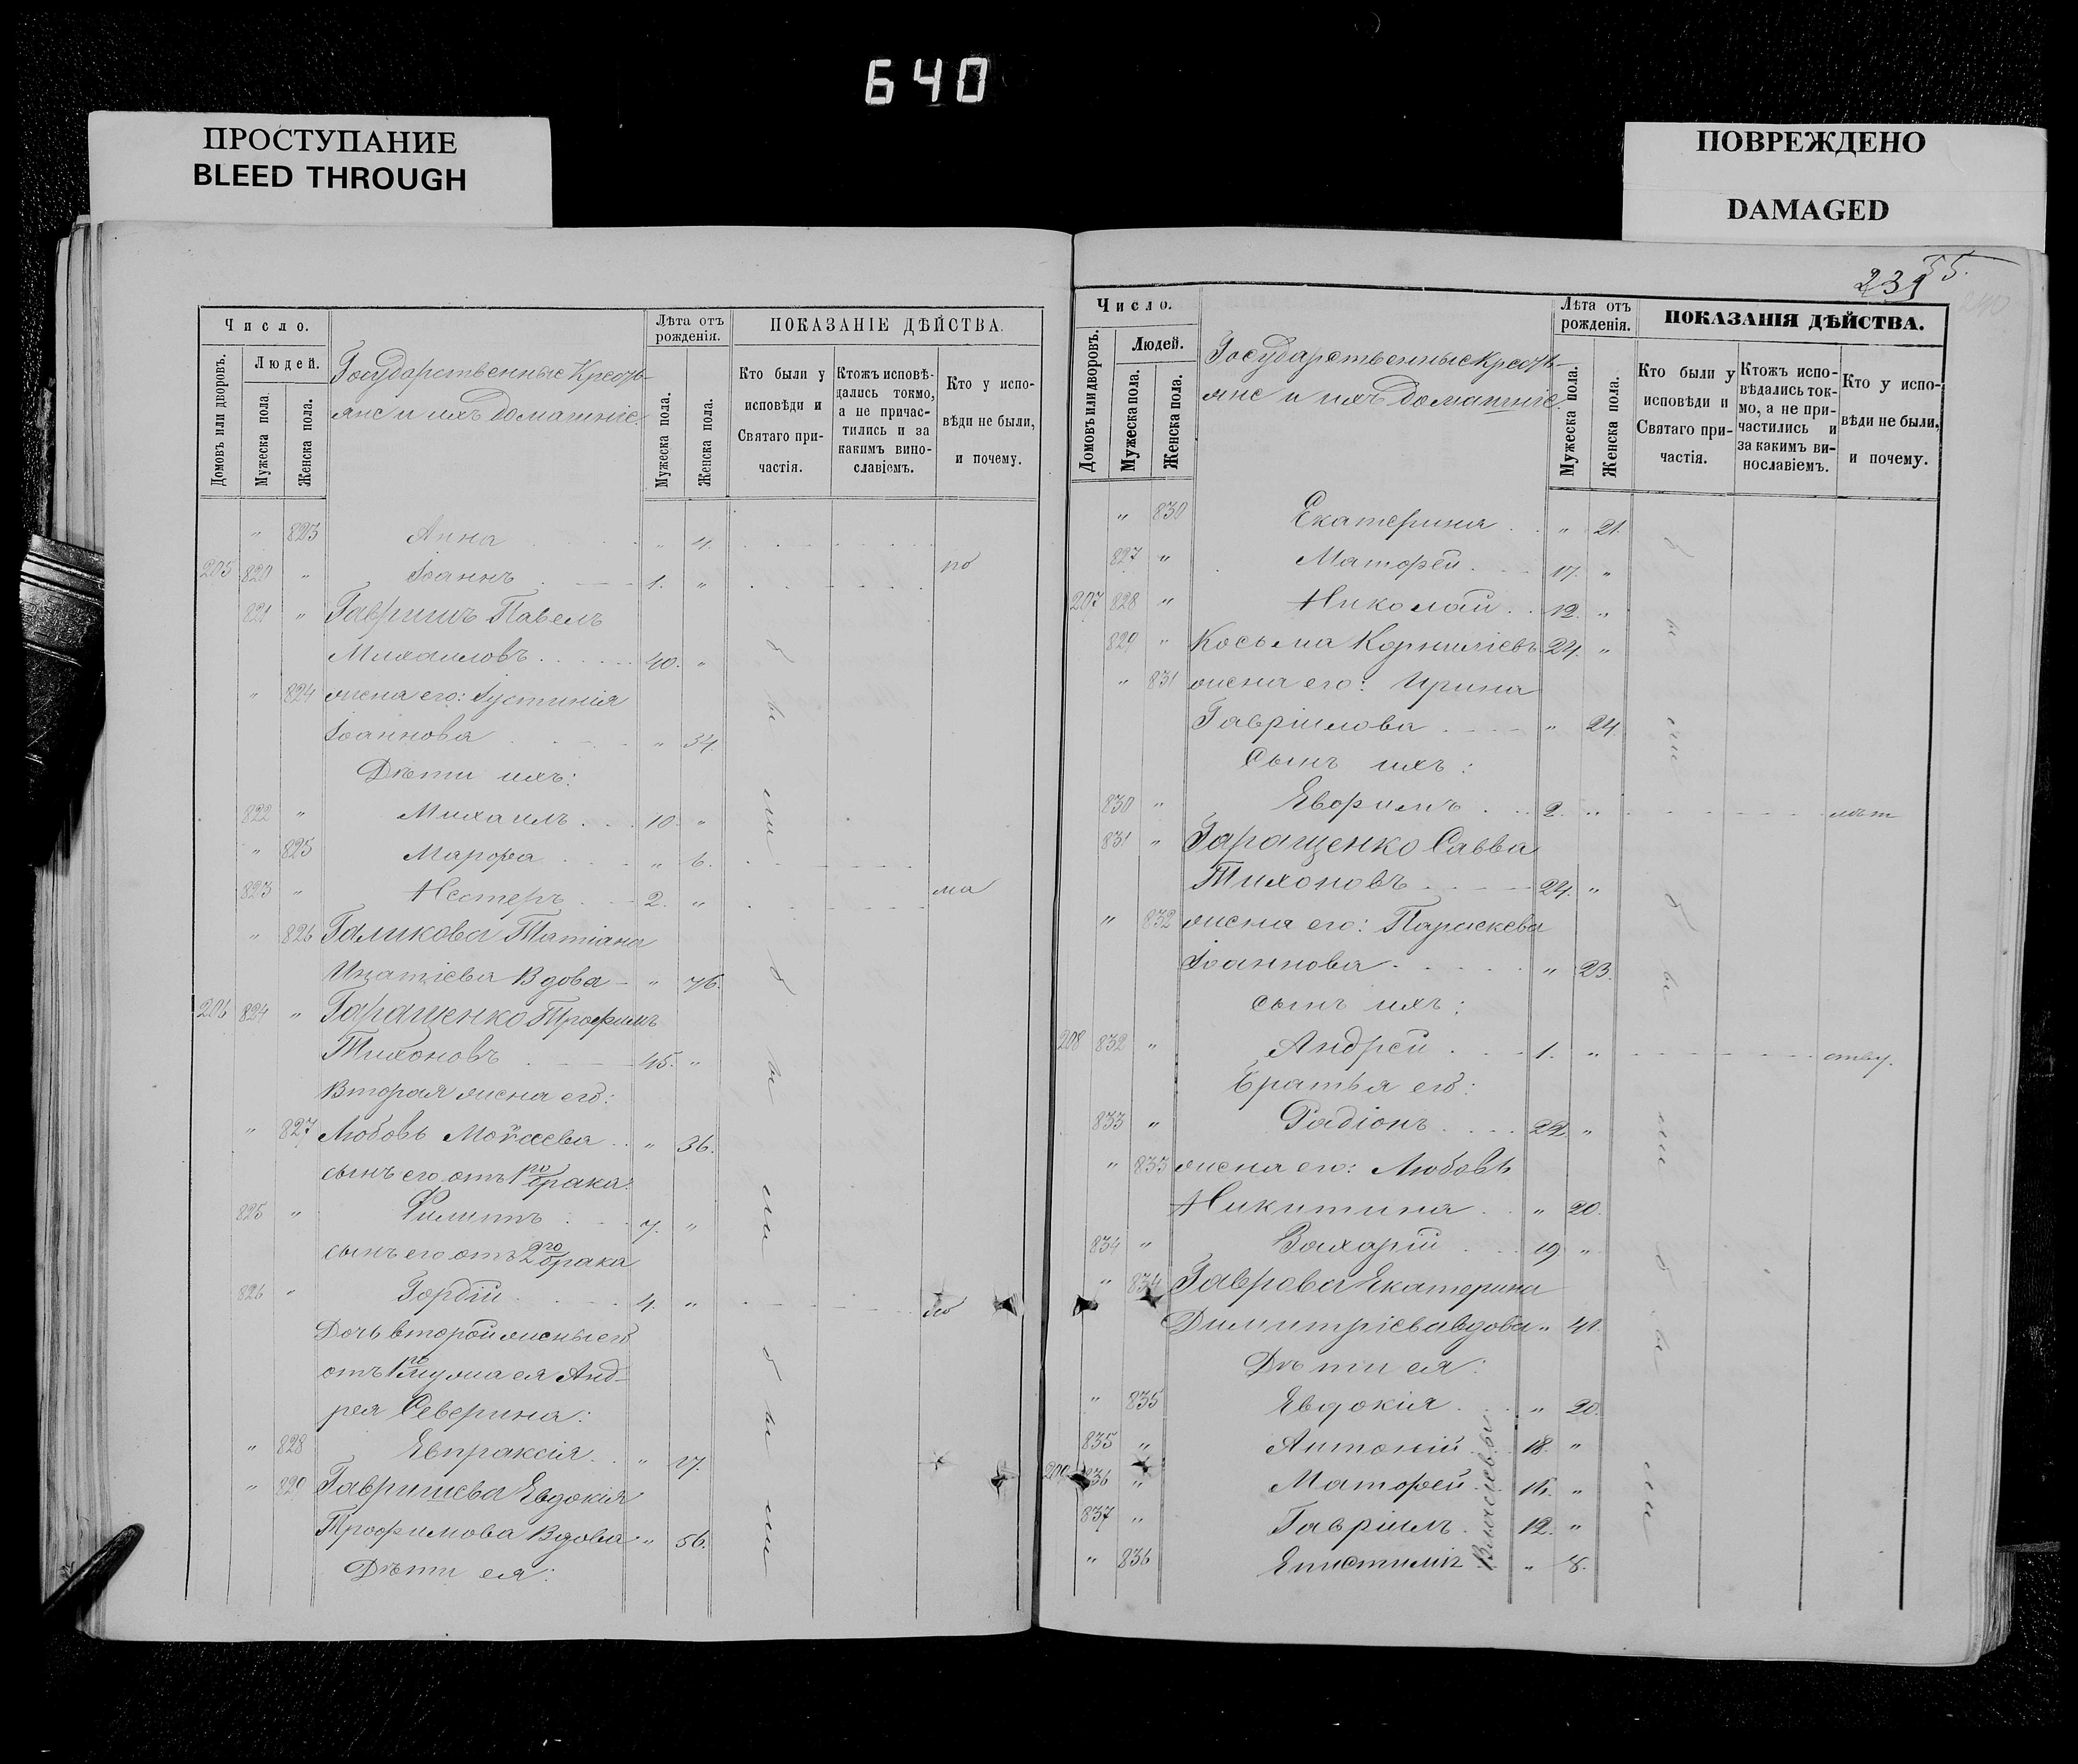 640
ПРОСТУПАНИЕ
BLEED THROUGH
ПОВРЕЖДЕНО
DAMAGED
Число.
Домовъ или дворовъ.
Людей.
Мужеска пола.
Женска пола.
Государственные Кресть-
яне и ихъ домашніе.
Лѣта отъ
рожденія.
Мужеска пола.
Женска пола.
ПОКАЗАНІЕ ДѢЙСТВА.
Кто были у
исповѣди и
Святаго при-
частія.
Ктожъ исповѣ-
дались токмо,
а не причас-
тились и за
какимъ вино-
славіемъ.
Кто у испо-
вѣди не были,
и почему.
" 823 Анна " 4.
205 820 " Іоаннъ 1. " по
821 " Гавришъ Павелъ
Михаиловъ 40. "
" 824 жена его: Іустинія
Іоаннова " 34.
Дѣти ихъ:
822 " Михаилъ 10. "
" 825 Марфа " 6.
823 " Нестеръ 2. " ма
" 826 Галикова Татіана
Игнатіева Вдова " 76.
206 824 " Гаращенко Трофимъ
Тихоновъ 45. "
Вторая жена его:
" 827 Любовь Моѵсеева " 36.
сынъ его отъ 1го брака:
825 " Филиппъ 7. "
сынъ его отъ 2го брака
826 " Гордій 4. "
Дочь второй жены его
отъ 1го мужа ея Анд-
рея Северина:
" 828 Евпраксія " 17.
" 829 Гавришева Евдокія
Трофимова Вдова " 56.
Дѣти ея:
были
были
были
55.
Число.
Домовъ или дворовъ.
Людей.
Мужеска пола.
Женска пола.
Государственные кресть-
яне и ихъ домашніе.
Лѣта отъ
рожденія.
Мужеска пола.
Женска пола.
ПОКАЗАНІЯ ДѢЙСТВА.
Кто были у
исповѣди и
Святаго при-
частія.
Ктожъ испо-
вѣдались ток-
мо, а не при-
частились и
за какимъ ви-
нославіемъ.
Кто у испо-
вѣди не были,
и почему.
" 830 Екатерина " 21.
827 " Матфей 17. "
207 828 " Николай 12. "
829 " Косьма Корниліевъ 24. "
" 831 жена его: Ирина
Гавріилова " 24.
Сынъ ихъ:
830 " Ефримъ 2. " лѣт
831 " Гаращенко Савва
Тихоновъ 24. "
" 832 жена его: Параскева
Іоаннова " 23.
сынъ ихъ:
208 832 " Андрей 1. " ству.
Братья его:
833 " Радіонъ 22. "
" 833 жена его: Любовь
Никитина " 20.
834 " Захарій 19. "
" 834 Гаврова Екатерина
Димитріева вдова " 41.
Дѣти ея:
" 835 Евдокія " 20.
835 " Антоній 18. "
209 836 " Матфей 16. "
837 " Гавріилъ 12. "
" 836 Епистимія " 8.
были
были
были